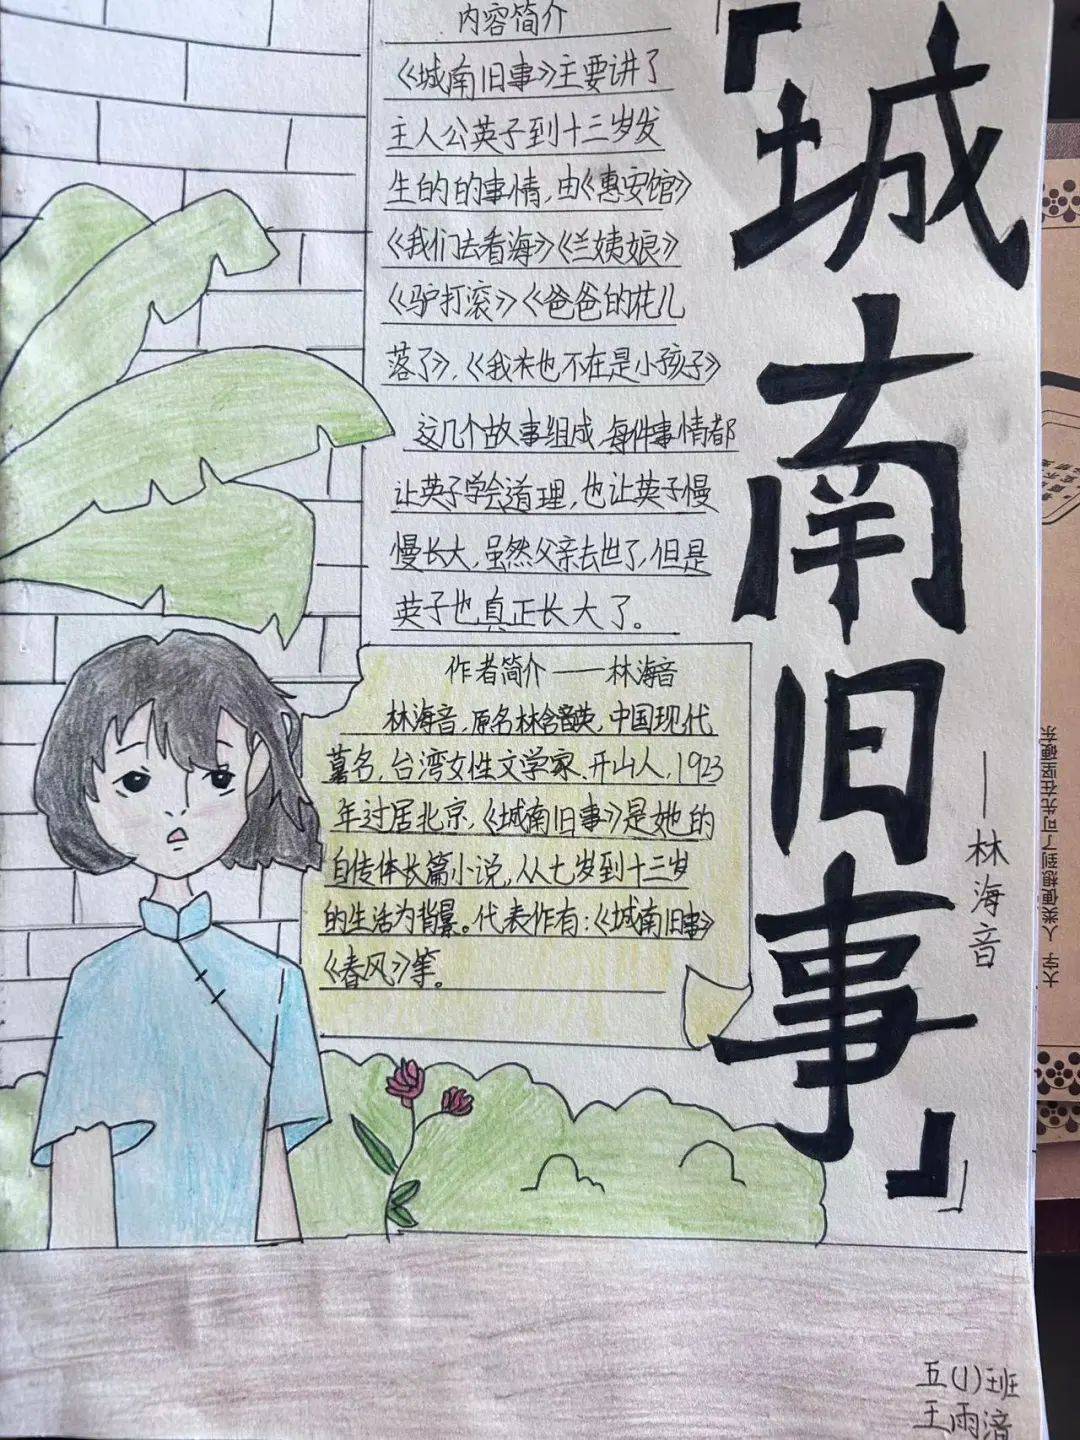 「城南旧事」
——林海音
内容简介
《城南旧事》主要讲了
主人公英子到十三岁发
生的的事情,由《惠安馆》
《我们去看海》《兰姨娘》
《驴打滚》《爸爸的花儿
落了》,《我未也不在是小孩子》
这几个故事组成,每件事情都
让英子学会道理,也让英子慢
慢长大,虽然父亲去世了,但是
英子也真正长大了。
作者简介——林海音
林海音,原名林含英,中国现代
著名,台湾女性文学家、开山人,1923
年过居北京,《城南旧事》是她的
自传体长篇小说,从七岁到十三岁
的生活为背景。代表作有:《城南旧事》
《春风》等。
五(1)班
王雨涪
大字 人类便想到了可先在坚硬东